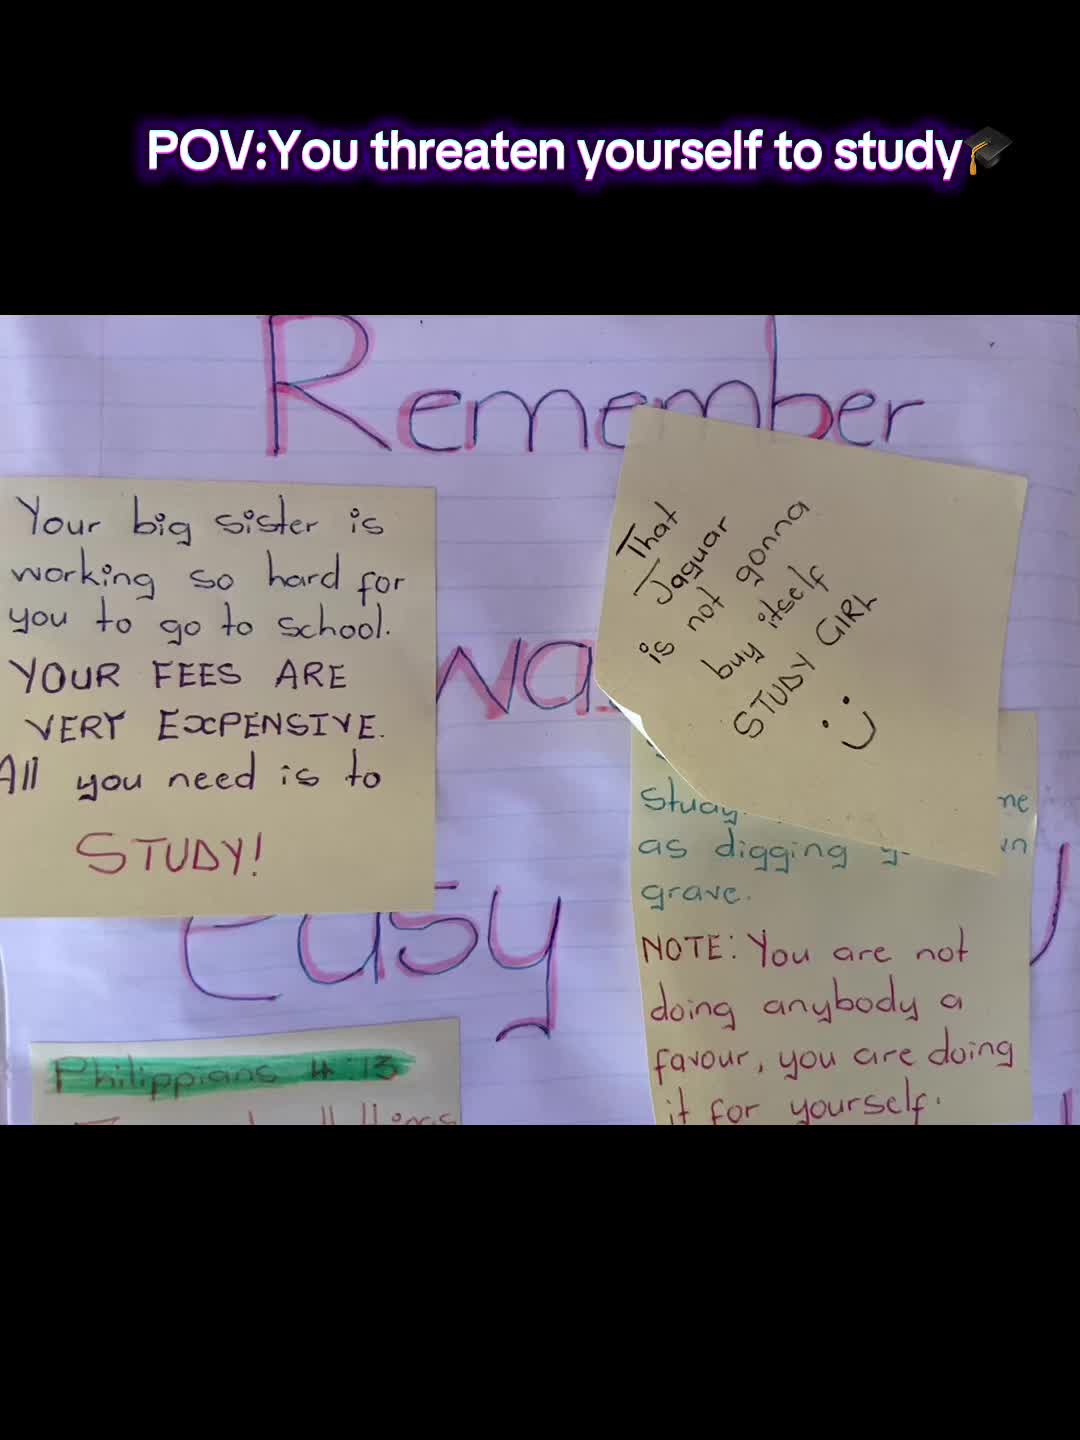 POV:You threaten yourself to study🎓
Remember
Your big sister is
working so hard for
you to go to school.
YOUR FEES ARE
VERY EXPENSIVE.
All you need is to
STUDY!
That
Jaguar
is not gonna
buy itself
STUDY GIRL
:)
study
as digging
grave.
NOTE: You are not
doing anybody a
favour, you are doing
it for yourself.
easy
Philippians 4:13